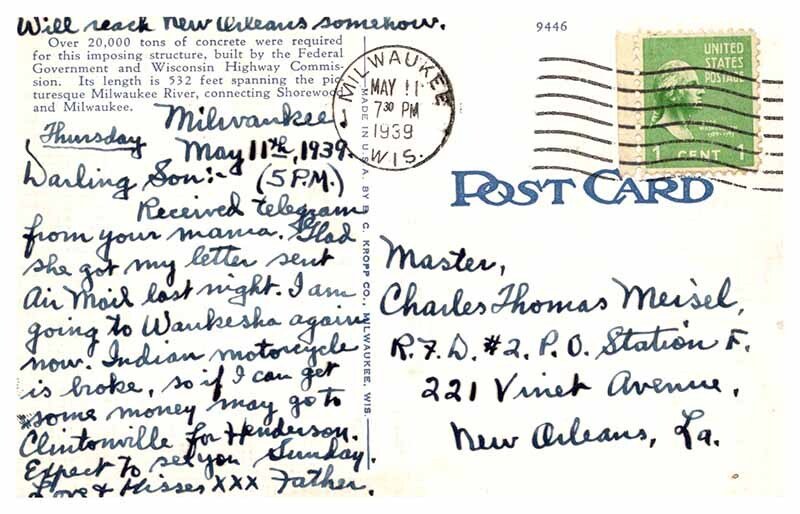 Will reach New Orleans somehow.
9446
Over 20,000 tons of concrete were required
for this imposing structure, built by the Federal
Government and Wisconsin Highway Commis-
sion. Its length is 532 feet spanning the pic-
turesque Milwaukee River, connecting Shorewood
and Milwaukee.
Milwaukee
Thursday May 11th, 1939.
Darling Son:- (5 P.M.)
Received telegram
from your mama. Glad
she got my letter sent
Air Mail last night. I am
going to Waukesha again
now. Indian motorcycle
is broke, so if I can get
some money may go to
Clintonville for Henderson.
Expect to see you Sunday.
Love & Kisses XXX Father.
MADE IN U.S.A. BY E. C. KROPP CO., MILWAUKEE, WIS.
MILWAUKEE
MAY 11
7 30 PM
1939
WIS.
UNITED
STATES
POSTAGE
1 CENT 1
POST CARD
Master,
Charles Thomas Meisel,
R.F.D. #2. P.O. Station F.
221 Vinet Avenue,
New Orleans, La.